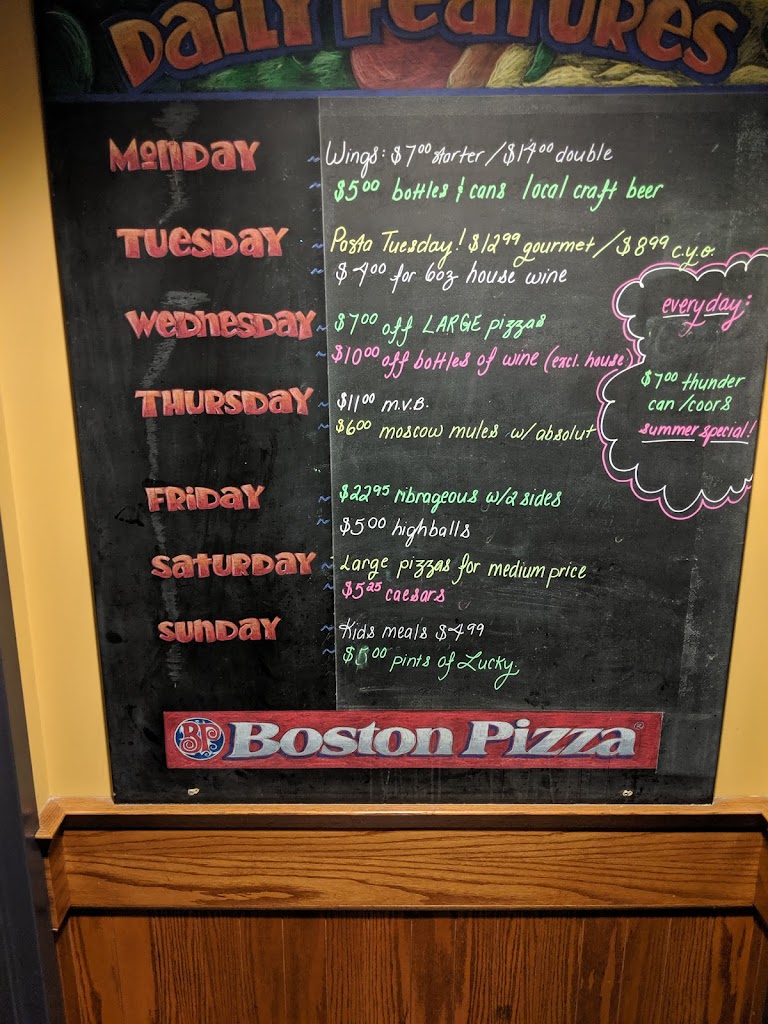 Daily Features
Monday
~ Wings: $7.00 starter / $14.00 double
~ $5.00 bottles & cans local craft beer
Tuesday
~ Pasta Tuesday! $12.99 gourmet / $8.99 c.y.o.
~ $4.00 for 6oz house wine
Wednesday
~ $7.00 off LARGE pizzas
~ $10.00 off bottles of wine (excl. house)
Thursday
~ $11.00 m.v.B.
~ $6.00 moscow mules w/ absolut
Friday
~ $22.95 ribrageous w/2 sides
~ $5.00 highballs
Saturday
~ Large pizzas for medium price
~ $5.25 caesars
Sunday
~ Kids meals $4.99
~ pints of Lucky.
everyday:
$7.00 thunder
can / coors
summer special!
BP Boston Pizza ®